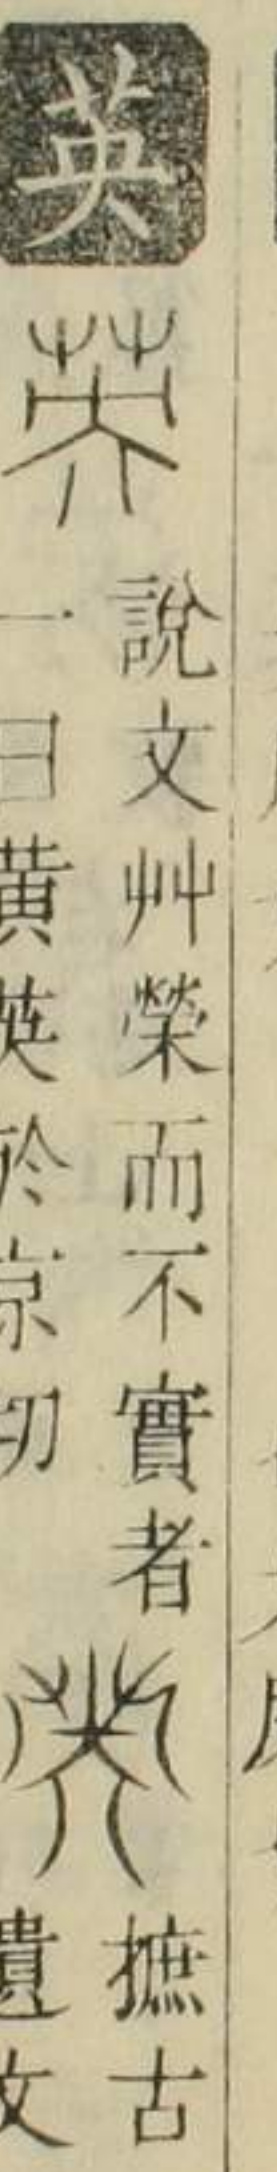 英
說文艸榮而不實者
一曰黃英於京切
摭古
遺文